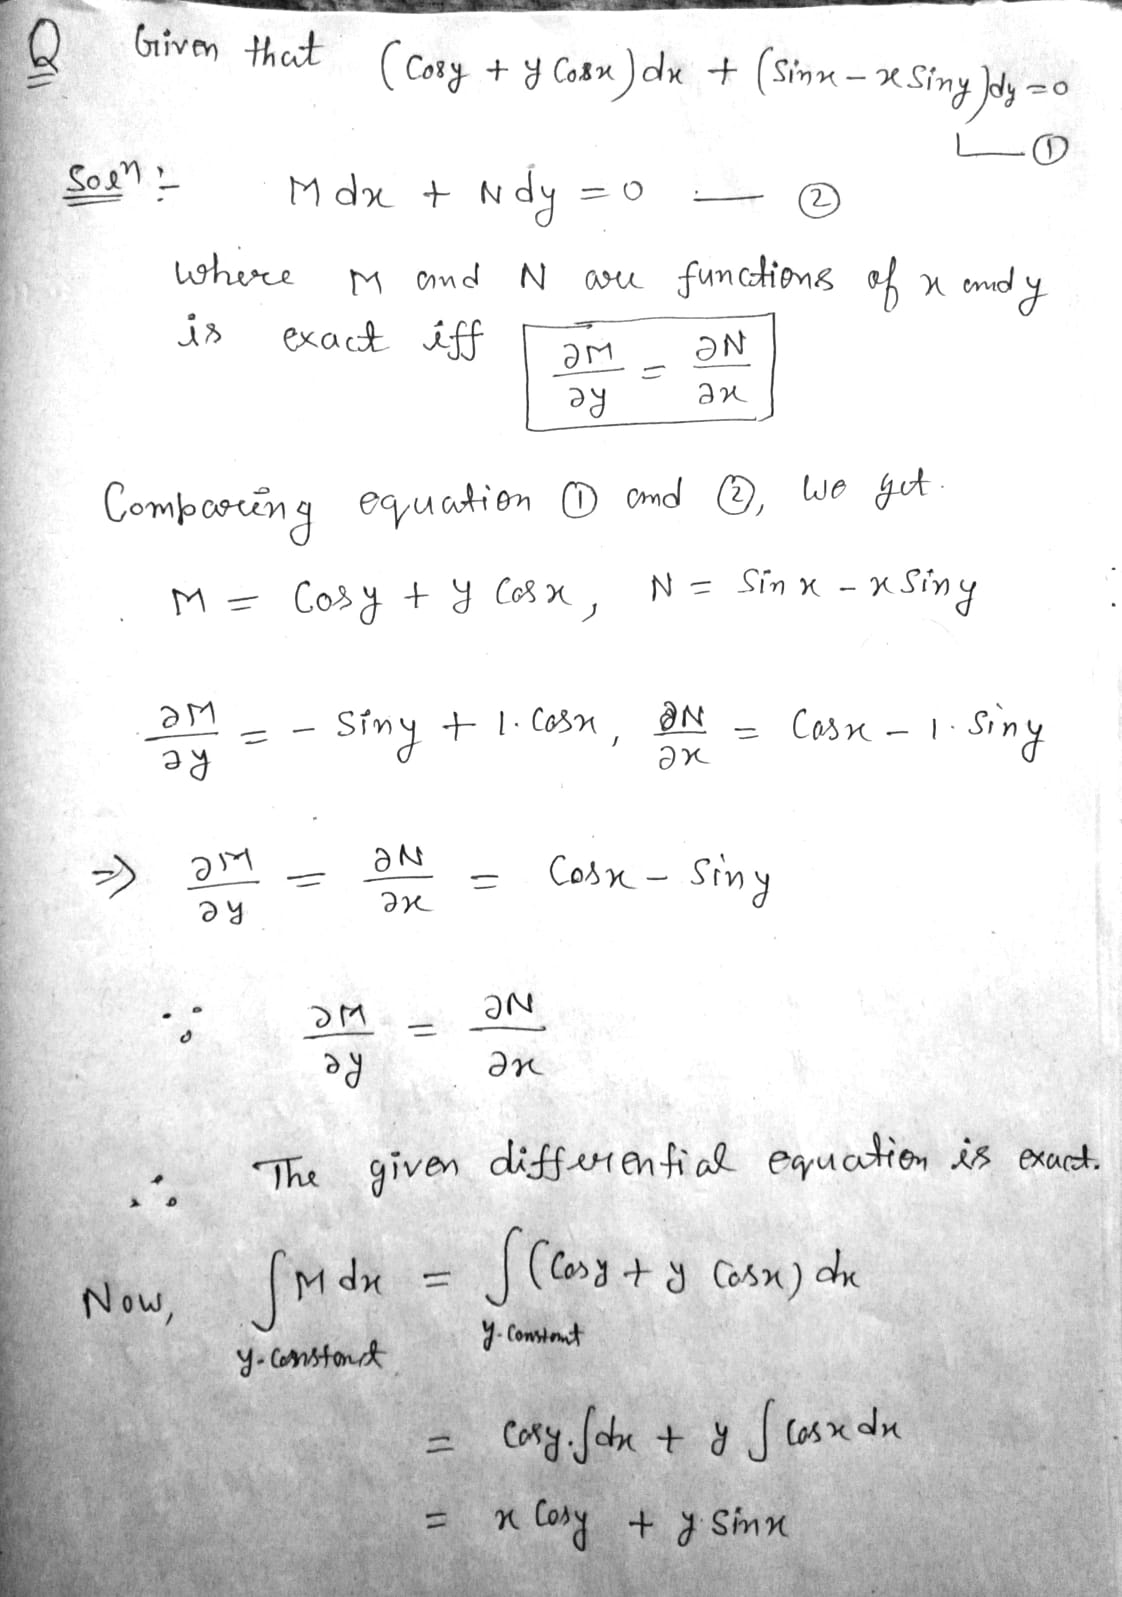 Q Given that (Cosy + y Cosx)dx + (Sinx - x Siny)dy = 0
①
Soln :- Mdx + Ndy = 0 — ②
where M and N are functions of x and y
is exact iff ∂M/∂y = ∂N/∂x
Comparing equation ① and ②, we get.
M = Cosy + y Cosx, N = Sin x - x Siny
∂M/∂y = - Siny + 1. Cosx, ∂N/∂x = Cosx - 1. Siny
⇒ ∂M/∂y = ∂N/∂x = Cosx - Siny
∵ ∂M/∂y = ∂N/∂x
∴ The given differential equation is exact.
Now, ∫Mdx = ∫(Cosy + y Cosx) dx
y-constant y-constant
= Cosy.∫dx + y ∫Cosx dx
= x Cosy + y Sinx